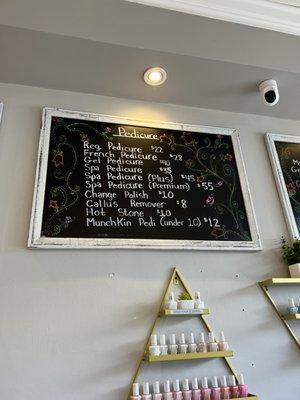 Pedicure
Reg. Pedicure $22
French Pedicure $28
Gel Pedicure
Spa Pedicure $35
Spa Pedicure (Plus) $45
Spa Pedicure (Premium) $55
Change Polish $10
Callus Remover $8
Hot Stone $10
MunchKin Pedi (under 10) $12